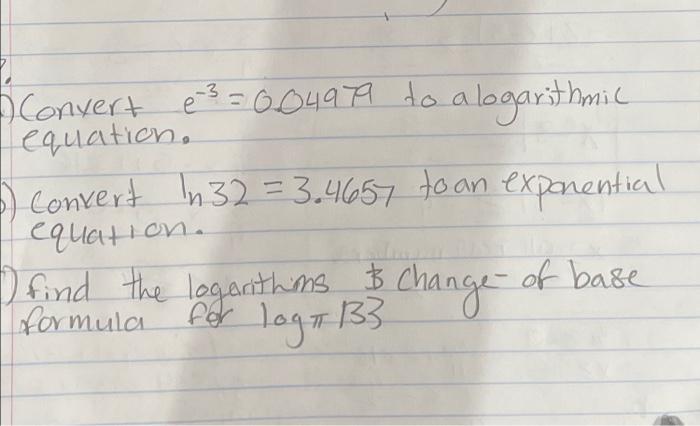 ) Convert e⁻³ = 0.04979 to a logarithmic
equation.
) Convert ln 32 = 3.4657 to an exponential
equation.
) find the logarithms & Change-of base
formula for log π 133